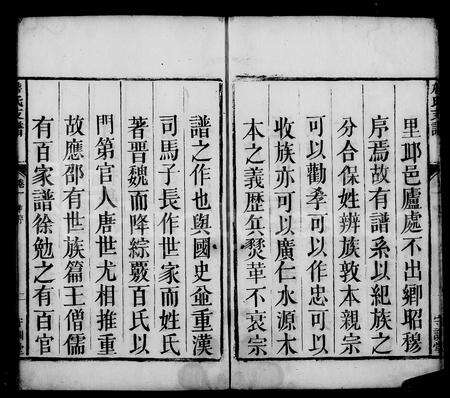 里邱邑廬處不出鄉昭穆
序焉故有譜系以紀族之
分合保姓辨族敦本親宗
可以勸孝可以作忠可以
收族亦可以廣仁水源木
本之義歷兵燹華不衰宗
譜之作也與國史並重漢
司馬子長作世家而姓氏
著晉魏而降綜覈百氏以
門第官人唐世尤相推重
故應邵有世族篇王僧孺
有百家譜徐勉之有百官